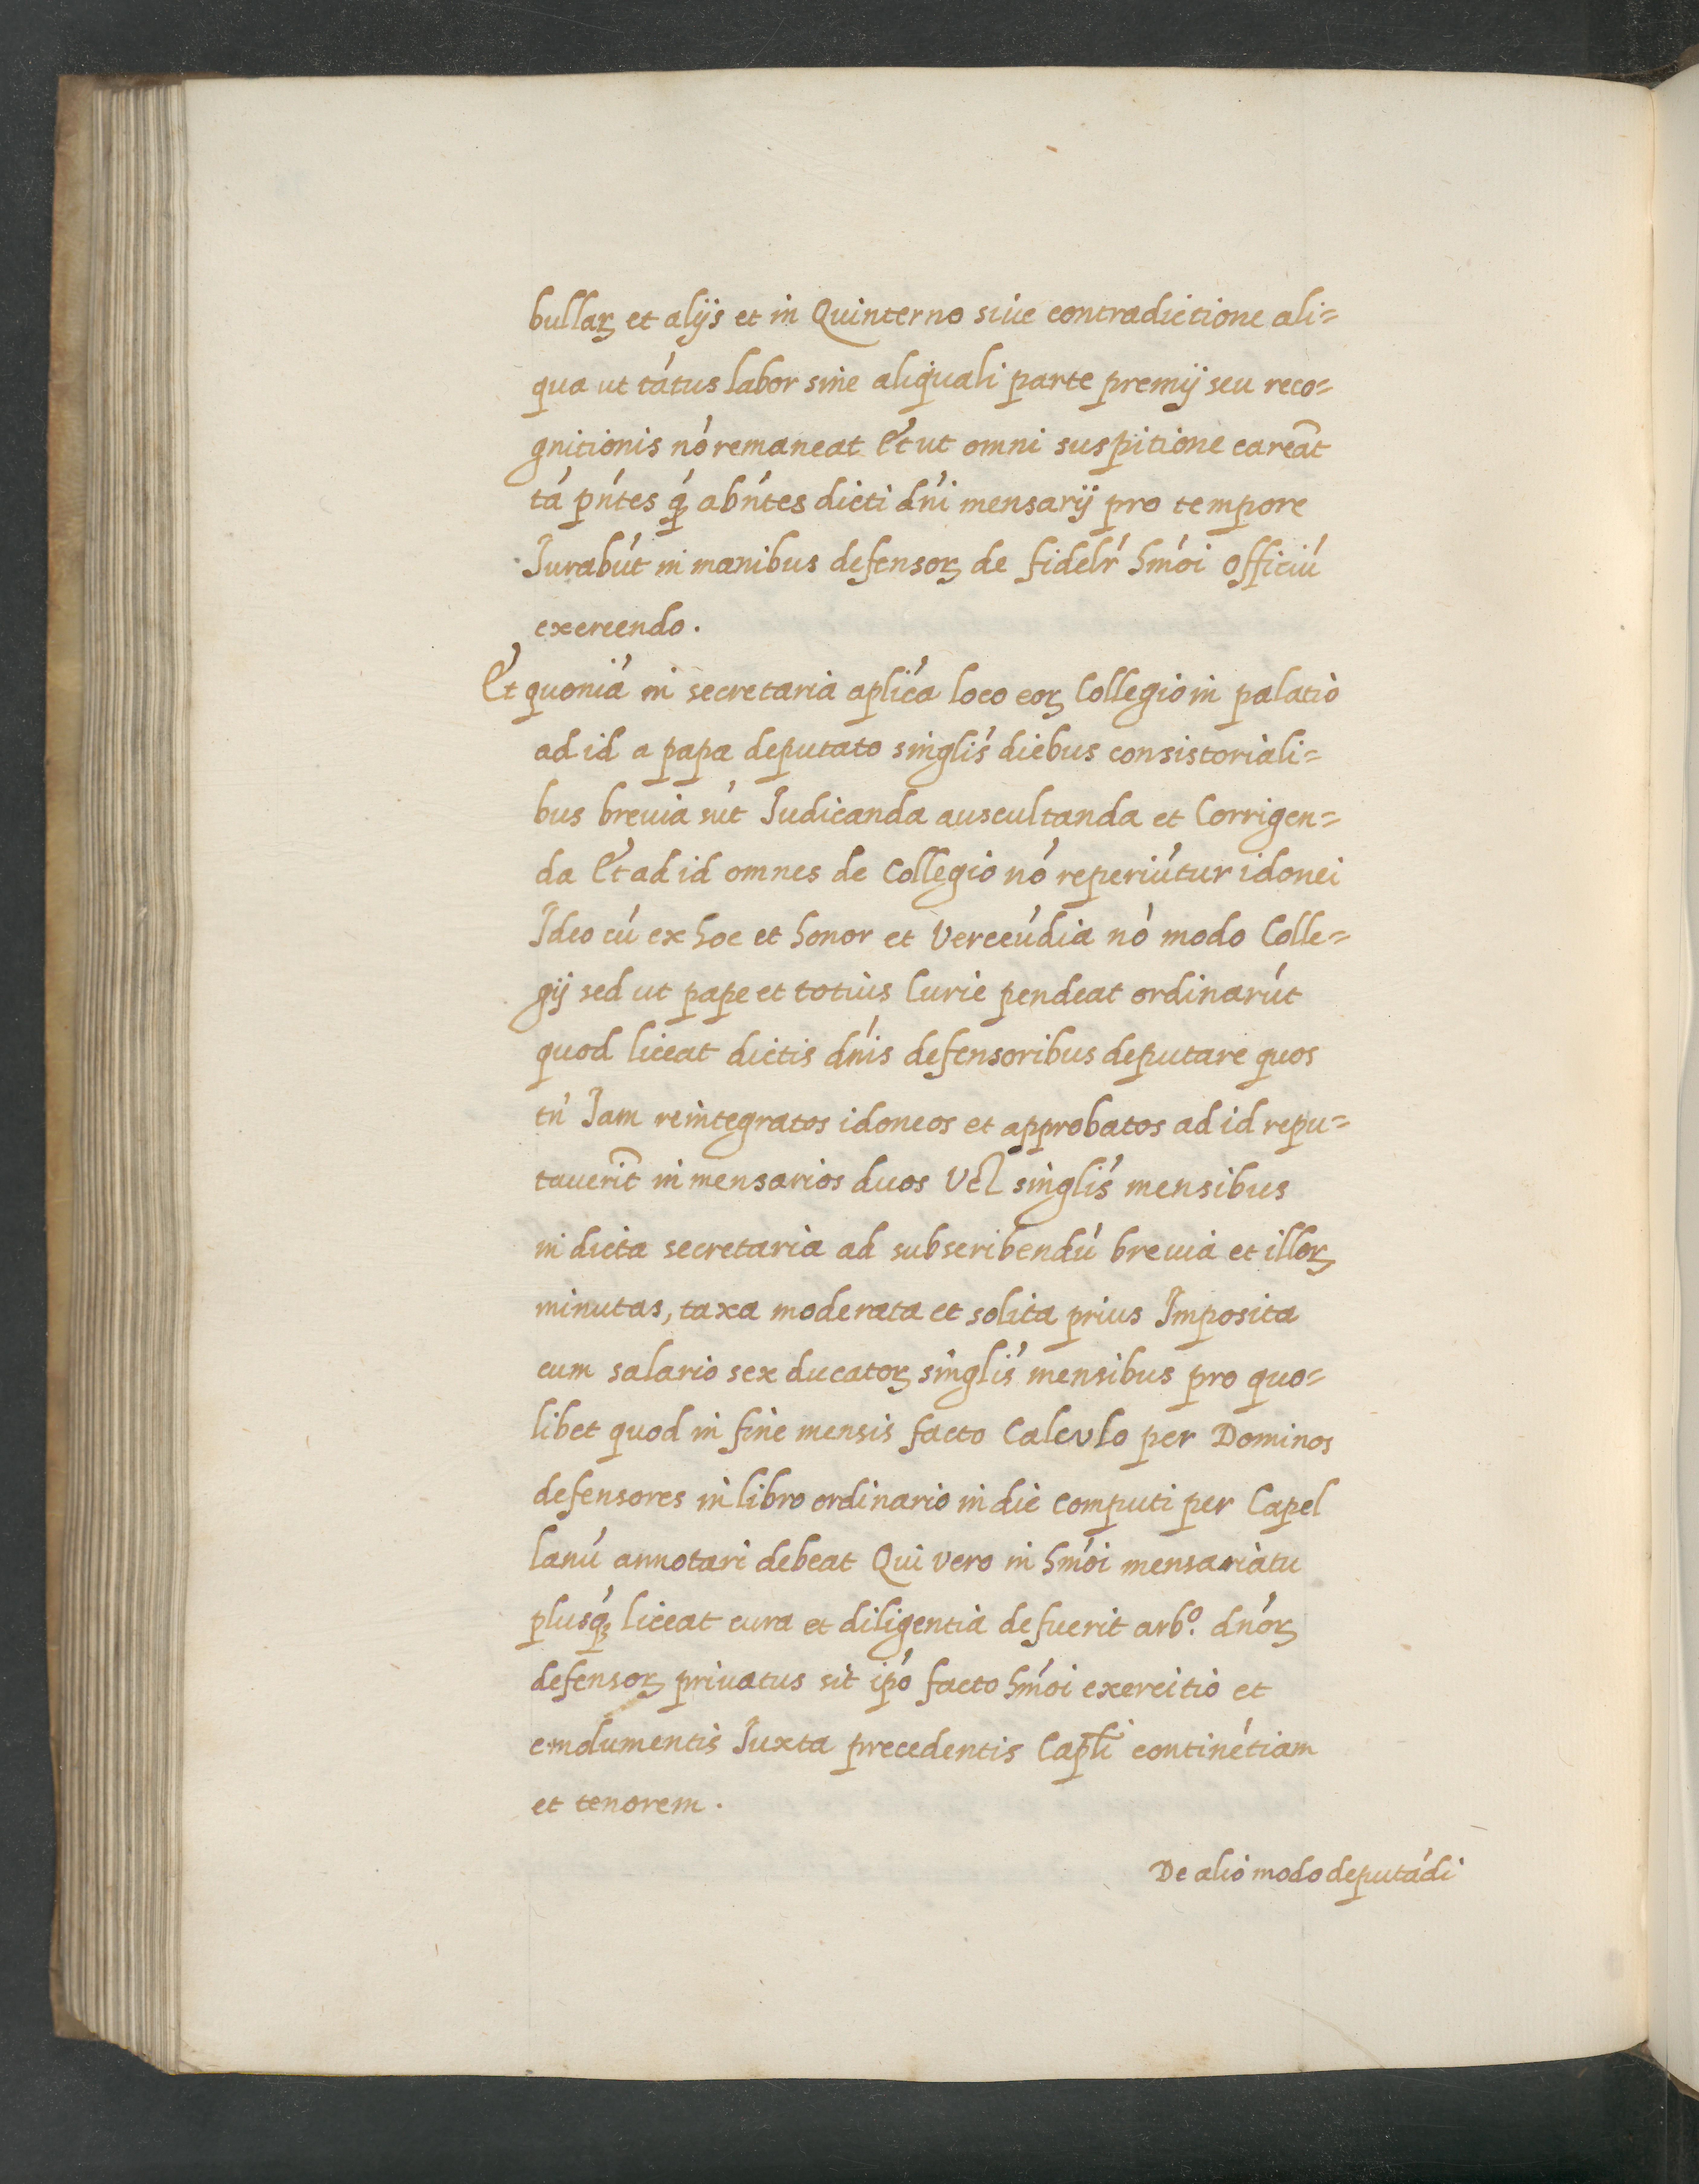 bullaꝝ et alijs et in Quinterno siue contradictione ali=
qua ut tátus labor sine aliquali parte premij seu reco=
gnitionis nó remaneat Et ut omni suspitione careāt
tá pńtes q́ abńtes dicti dńi mensarij pro tempore
Jurabút in manibus defensoꝝ de fidelŕ hmói officiú
exercendo.
Et quoniá in secretaria aplića loco eoꝝ Collegio in palatio
ad id a papa deputato singlis´ diebus consistoriali=
bus breuia sút Judicanda auscultanda et Corrigen=
da Et ad id omnes de Collegio nó reperiútur idonei
Ideo cú ex hoc et honor et Verecúdia nó modo Colle=
gij sed ut pape et totius Curie pendeat ordinarút
quod liceat dictis dńis defensoribus deputare quos
tń Jam reintegratos idoneos et approbatos ad id repu=
tauerīt in mensarios duos Vel singlis´ mensibus
in dicta secretaria ad subscribendú breuia et illoꝝ
minutas, taxa moderata et solita prius Imposita
cum salario sex ducatoꝝ singlis´ mensibus pro quo=
libet quod in fine mensis facto Calculo per Dominos
defensores in libro ordinario in die computi per Capel
lanú annotari debeat Qui vero in hmói mensariatu
plusq́ liceat cura et diligentia defuerit arbº. dnóꝝ
defensoꝝ priuatus sit ipó facto hmói exercitio et
emolumentis Juxta precedentis Capli̅ continétiam
et tenorem.
De alio modo deputádi